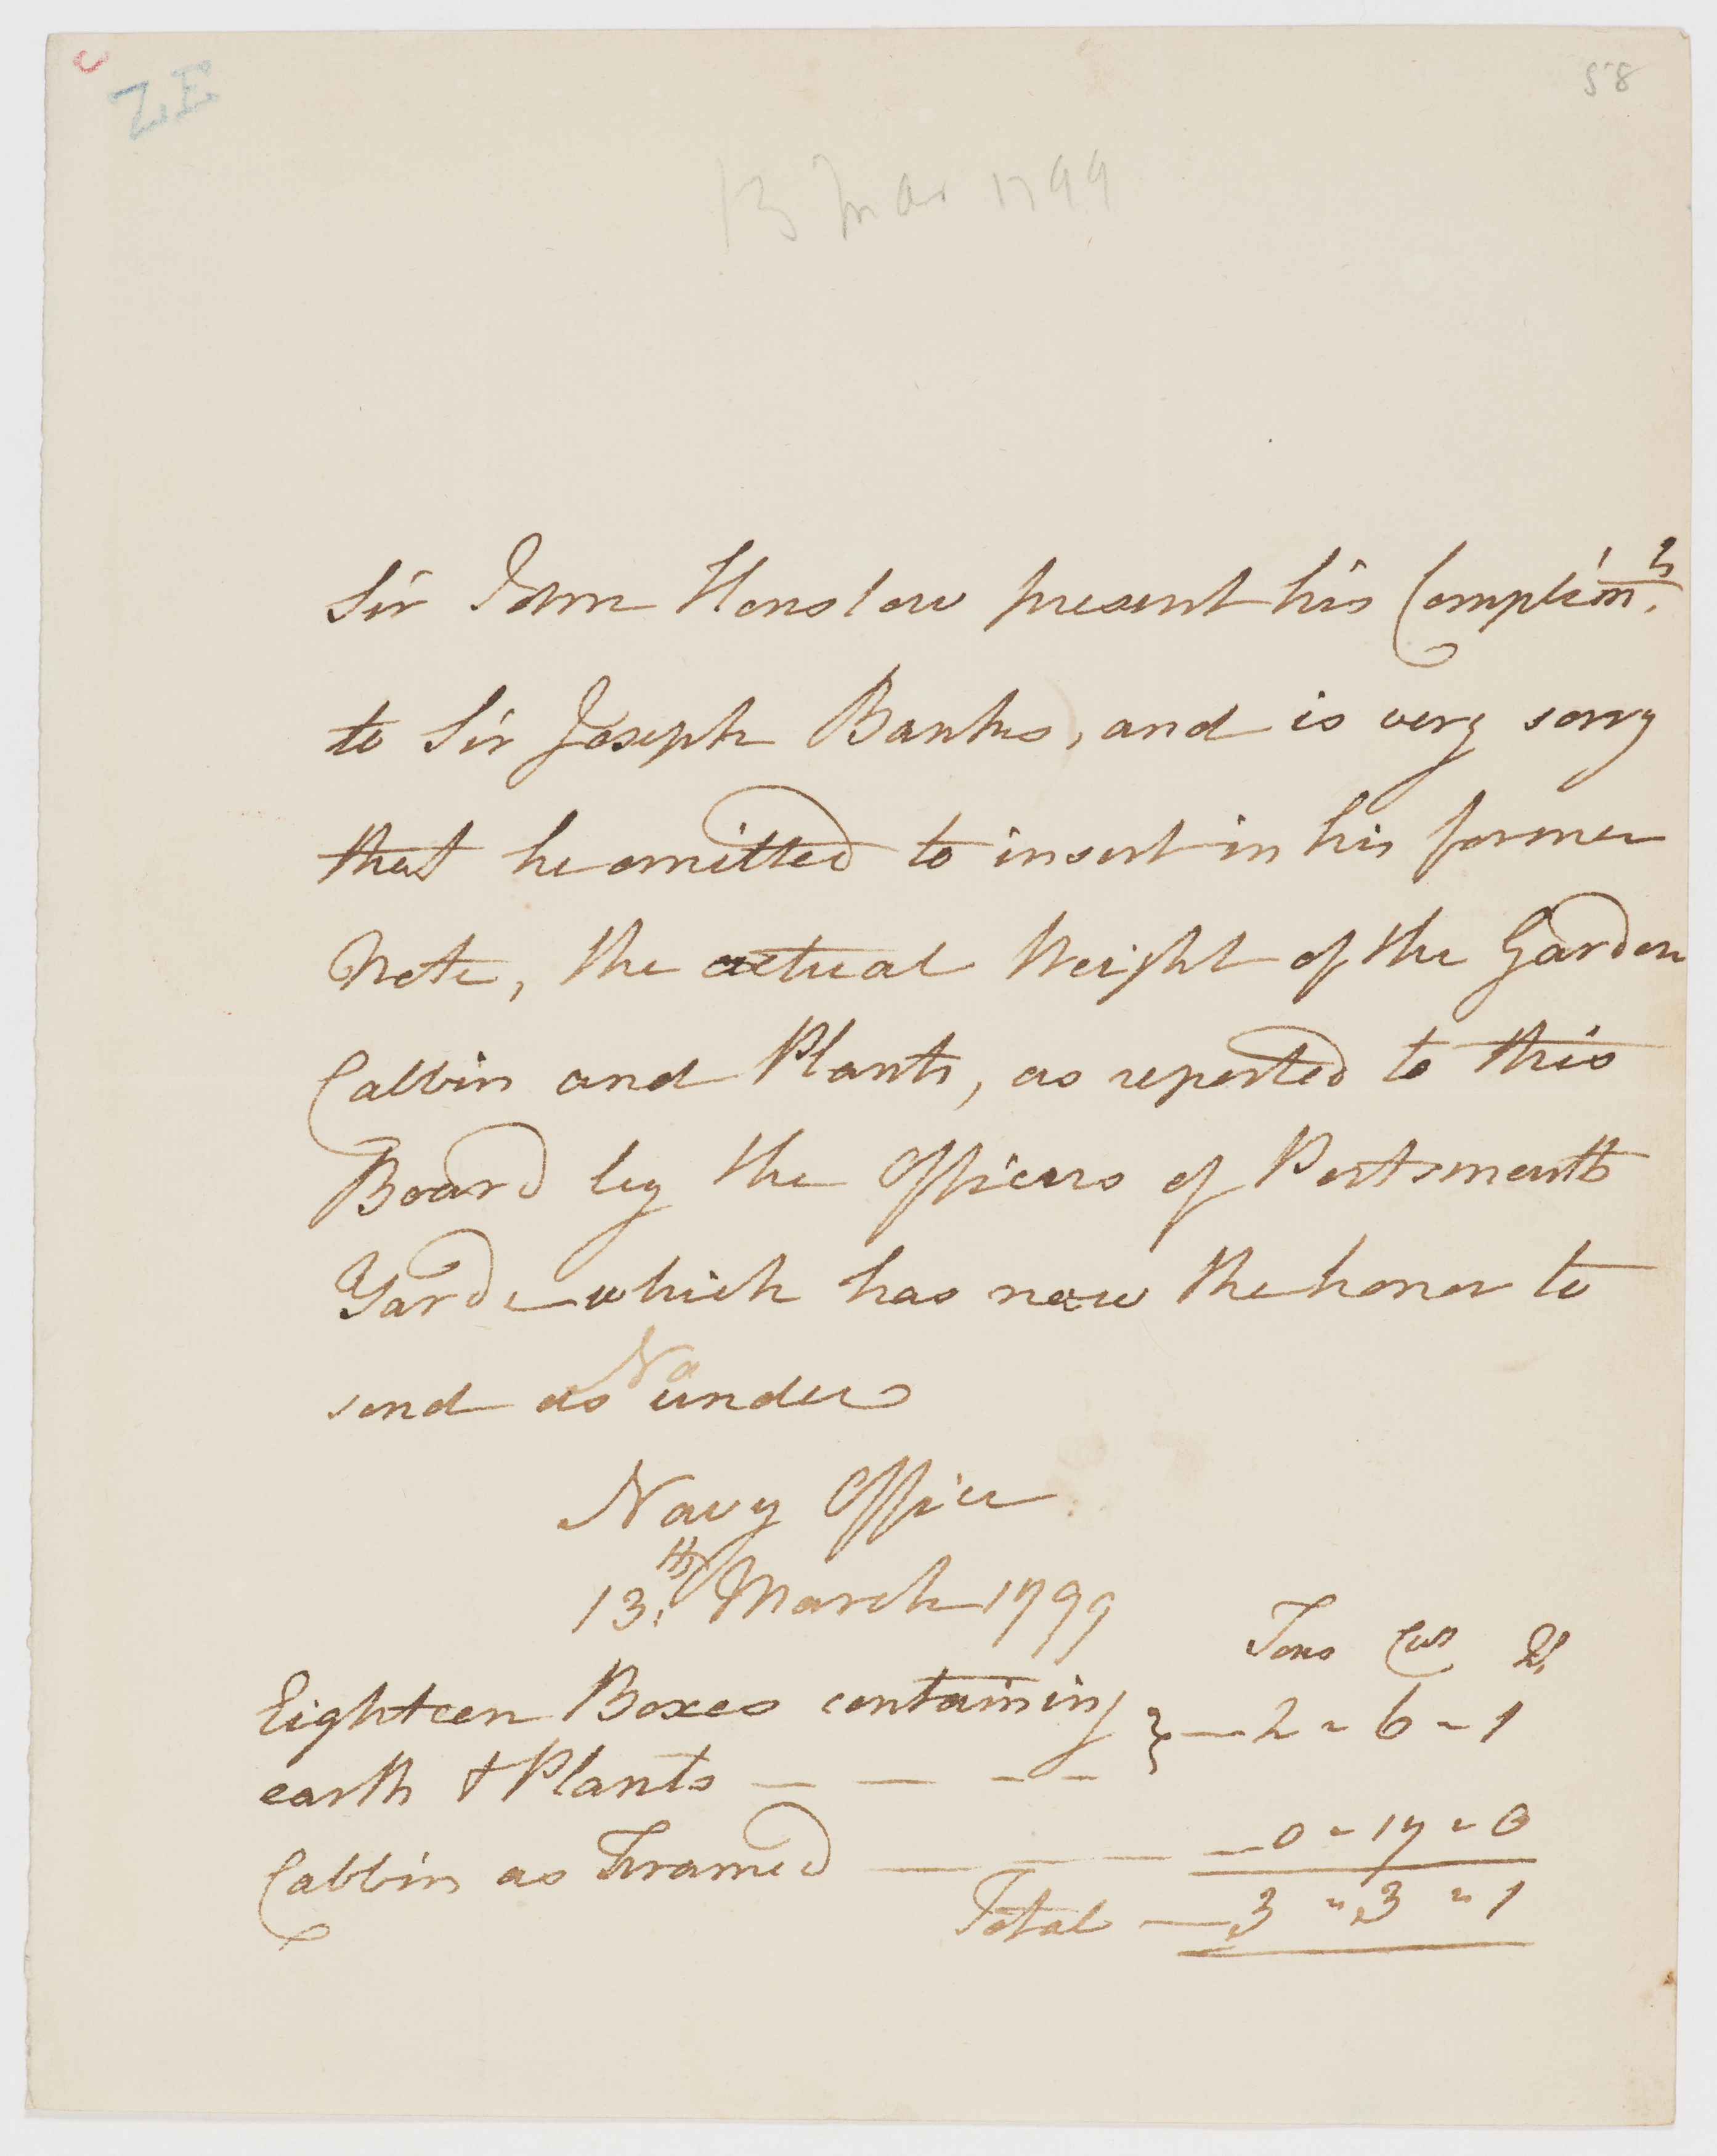 ZE
58
13 Mar 1799
Sir John Henslow present his Complim.ts
to Sir Joseph Banks, and is very sorry
that he omitted to insert in his former
Note, the actual Weight of the Garden
Cabbin and Plants, as reported to this
Board by the Officers of Portsmouth
Yard which has now the honor to
send as under
Navy Office
13.th March 1799
Tons Cwt Qr
Eighteen Boxes containing } — 2 " 6 " 1
earth & Plants — — — —
Cabbin as Framed — — — 0 " 17 " 0
Total — 3 " 3 " 1